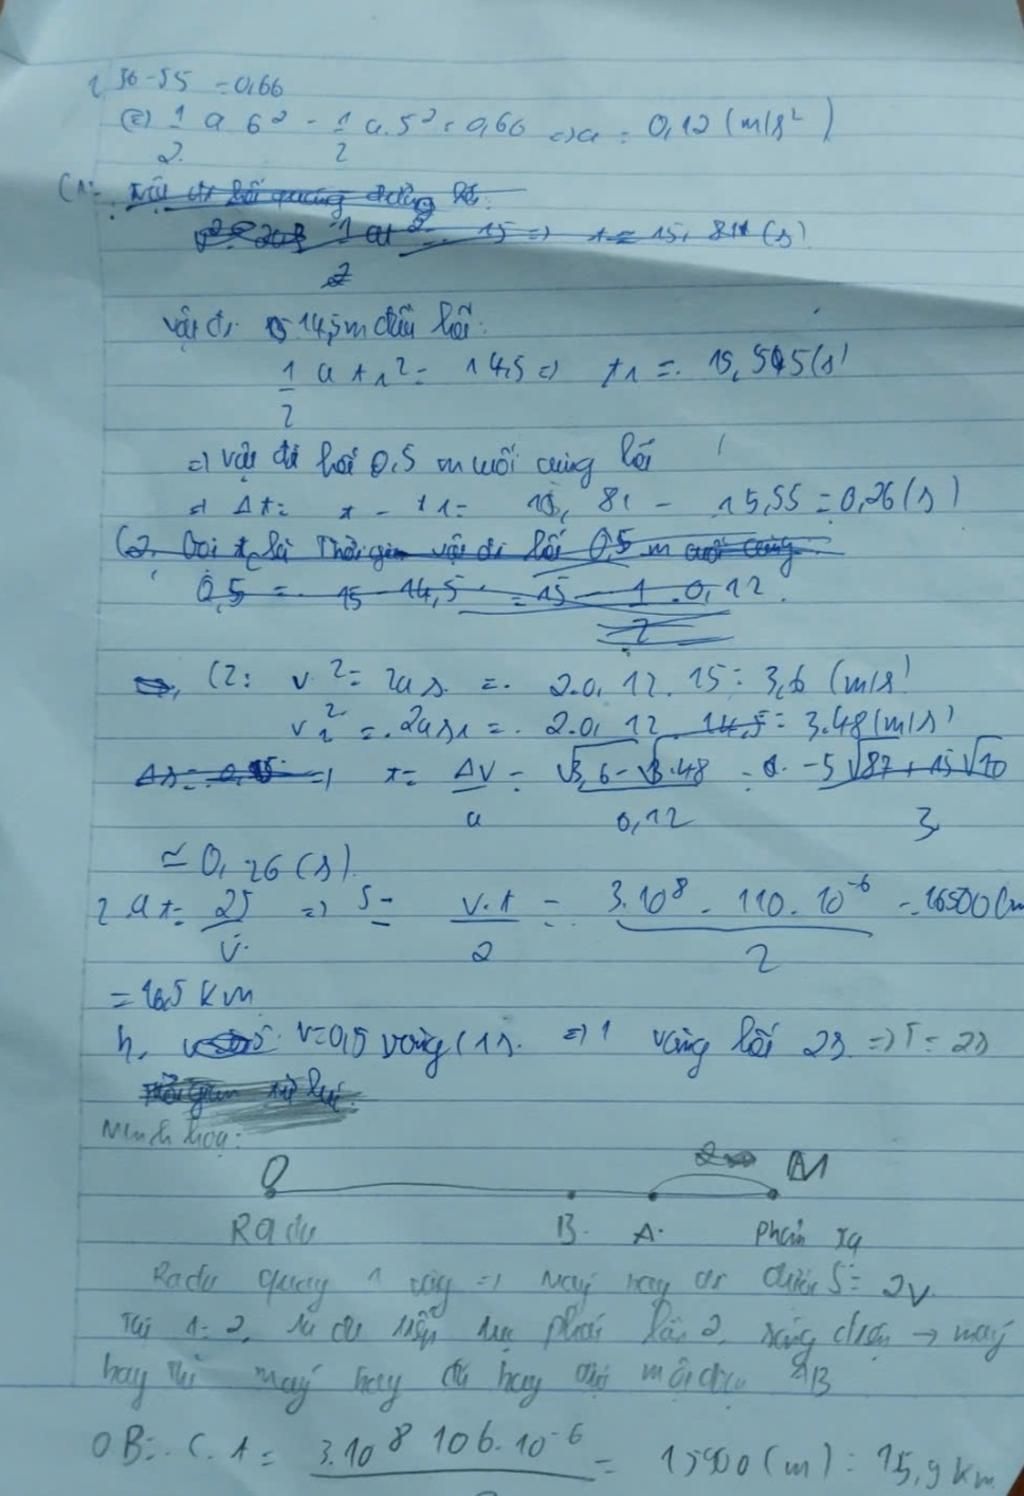 S6-S5 = 0,66
(=) 1/2 a 6² - 1/2 a.5² = 0,66 => a = 0,12 (m/s²)
C1:
1/2 at² = 15 => t = 15,81 (s)
vật đi 14,5m đầu hết:
1/2 a t1² = 14,5 => t1 = 15,545(s)
=> vật đi hết 0,5 m cuối cùng hết
=> Δt = t - t1 = 15,81 - 15,55 = 0,26(s)
C2. Gọi t2 là thời gian vật đi hết 0,5 m cuối cùng
0,5 = 15 - 14,5 = 15 - 1/2 . 0,12
C2: v² = 2as = 2.0,12.15 = 3,6 (m/s)
v1² = 2as1 = 2.0,12.14,5 = 3.48(m/s)
=> t = Δv/a = (√3,6 - √3.48)/0,12 = (-5√87 + 15√10)/3
≃ 0,26(s).
2. a t = 2S/v => S = v.t/2 = 3.10⁸.110.10⁻⁶/2 = 16500(m
= 16,5 km
b, v=0,5 vòng/1s. => 1 vòng hết 2s => T = 2s
Minh hoạ:
O M
Rada B. A. Phản xạ
Rada quay 1 vòng => máy bay đi được S = 2v
phát lần 2, sóng → máy
bay thì máy bay đã bay AB
OB = C.t = 3.10⁸ 106.10⁻⁶ = 15900(m) = 15,9 km